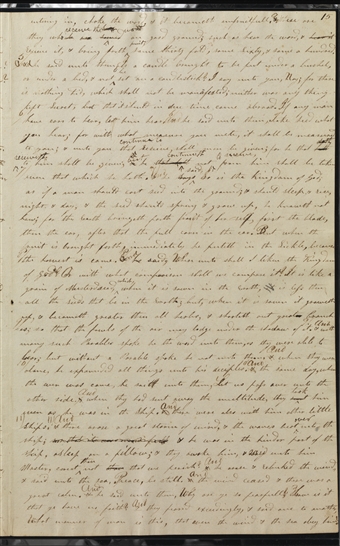 15
entering in, choke the word, & it becometh unfruitful. & these are
they who receive the word on good ground, such as hear the word, &
receive it, & bring forth fruit, some thirty fold, some sixty, & some a hundred
& he said unto them, is a candle brought to be put under a bushel,
or under a bed, & not to be set on a candlestick? I say unto you, Nay, for there
is nothing hid, which shall not be manifested; neither was any thing
kept secret, but that it should in due time come abroad. If any man
have ears to hear, let him hear. & he said unto them, Take heed what
you hear, for with what measure you mete, it shall be measured
to you; & unto you that continue to receive, shall more be given; for he that
receiveth to him shall be given; but he that continueth not to receive, from him shall be taken
even that which he hath. & he said, So is the Kingdom of God,
as if a man should cast seed into the ground; & should sleep & rise,
night & day, & the seed should spring & grow up, he knoweth not
how; for the Earth bringeth forth fruit of her self, first the blade,
then the ear, after that the full corn in the ear. But when the
fruit is brought forth, immediately he putteth in the Sickle, because
the harvest is come. & he said, Where unto shall I liken the Kingdom
of God? Or with what comparison shall we compare it? It is like a
grain of mustard seed, which when it is sown in the earth, is less than
all the seeds that be in the Earth; but, when it is sown it groweth
up, & becometh greater than all herbs, & shooteth out great branches
so that the fowls of the air may lodge under the shadow of it. And with
many such Parables spake he the word unto them, as they were able to
bear; but without a Parable spake he not unto them; & when they were
alone, he expounded all things unto his disciples. And the same day, when
the even was come, he saith unto them, let us pass over unto the
other side. And when they had sent away the multitude, they took him
even as he was in the Ship. And there were also with him other little
Ships. And there arose a great storm of wind, & the waves beat over into the
ship; & he was in the hinder part of the
ship, asleep on a pillow; & they awoke him, & said unto him
Master, carest thou not that we perish? And he arose & rebuked the wind,
& said unto the sea, Peace, be still; And the wind ceased & there was a
great calm. And he said unto them, Why are ye so fearful? How is it
that ye have no faith? And they feared exceedingly, & said one to another
What manner of man is this, that even the wind & the sea obey him